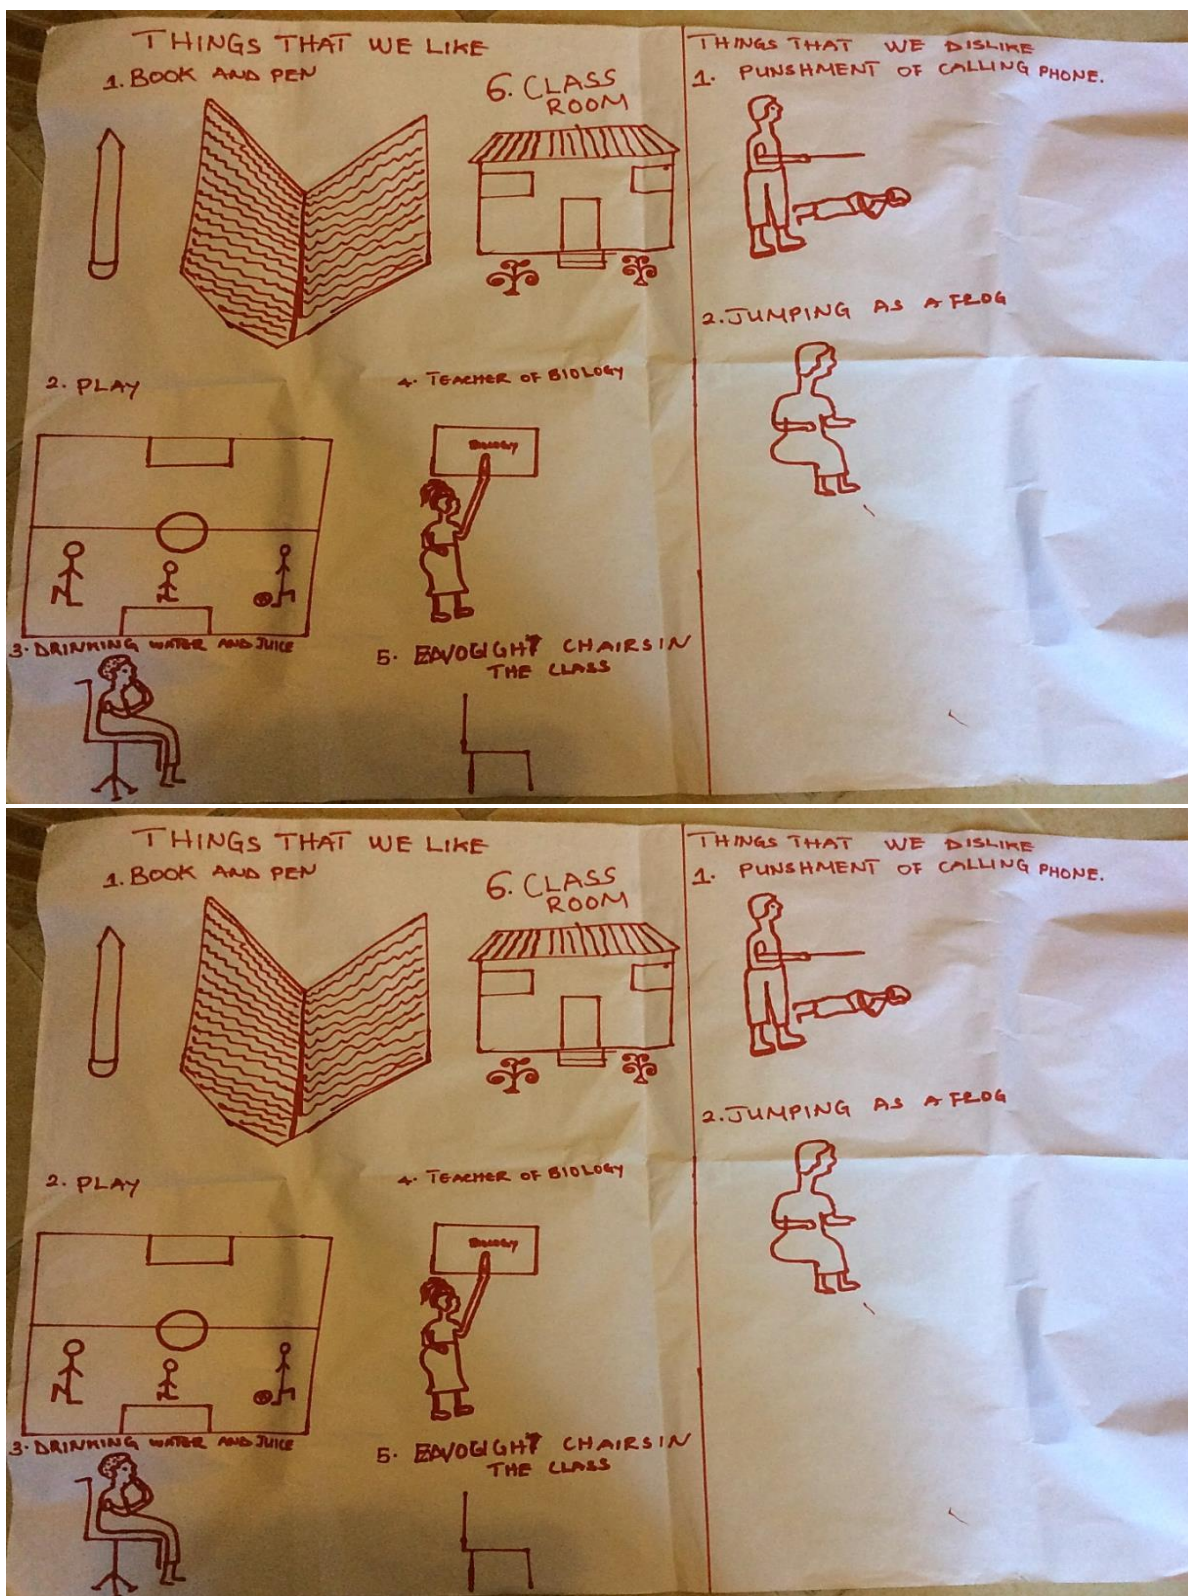 THINGS THAT WE LIKE
1. BOOK AND PEN
6. CLASS
ROOM
2. PLAY
4. TEACHER OF BIOLOGY
BIOLOGY
3. DRINKING WATER AND JUICE
5. CHAIRS IN
THE CLASS
THINGS THAT WE DISLIKE
1. PUNSHMENT OF CALLING PHONE.
2. JUMPING AS A FROG
THINGS THAT WE LIKE
1. BOOK AND PEN
6. CLASS
ROOM
2. PLAY
4. TEACHER OF BIOLOGY
BIOLOGY
3. DRINKING WATER AND JUICE
5. CHAIRS IN
THE CLASS
THINGS THAT WE DISLIKE
1. PUNSHMENT OF CALLING PHONE.
2. JUMPING AS A FROG